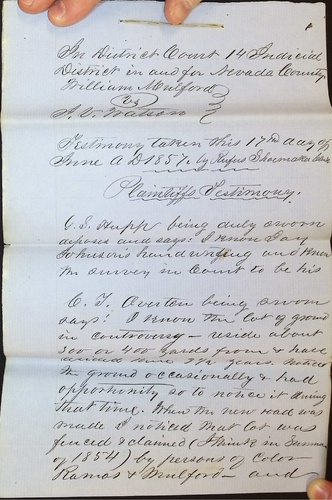 In District Court 14 Judicial
District in and for Nevada County
William Mulford
vs
A. V. Watson
Testimony taken this 17th day of
June A D 1857. by Rufus Shoemaker
Plaintiffs Testimony.
C. S. Hupp being duly sworn
deposes and says: I know Jay
Johnsons handwriting and know
the survey in Court to be his
C. T. Overton being sworn
says: I know the lot of ground
in controversy — reside about
300 or 400 yards from & have
since years. Noticed
the ground occasionally & had
opportunity so to notice it during
that time. When the new road was
made I noticed that lot was
fenced & claimed (I think in Summer
of 1854) by persons of Color
Ramos & Mulford — and